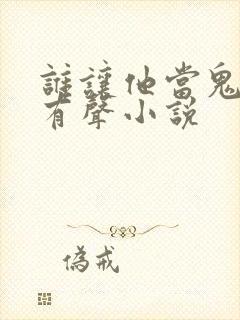 誰讓他當鬼
有聲小說
偽戒